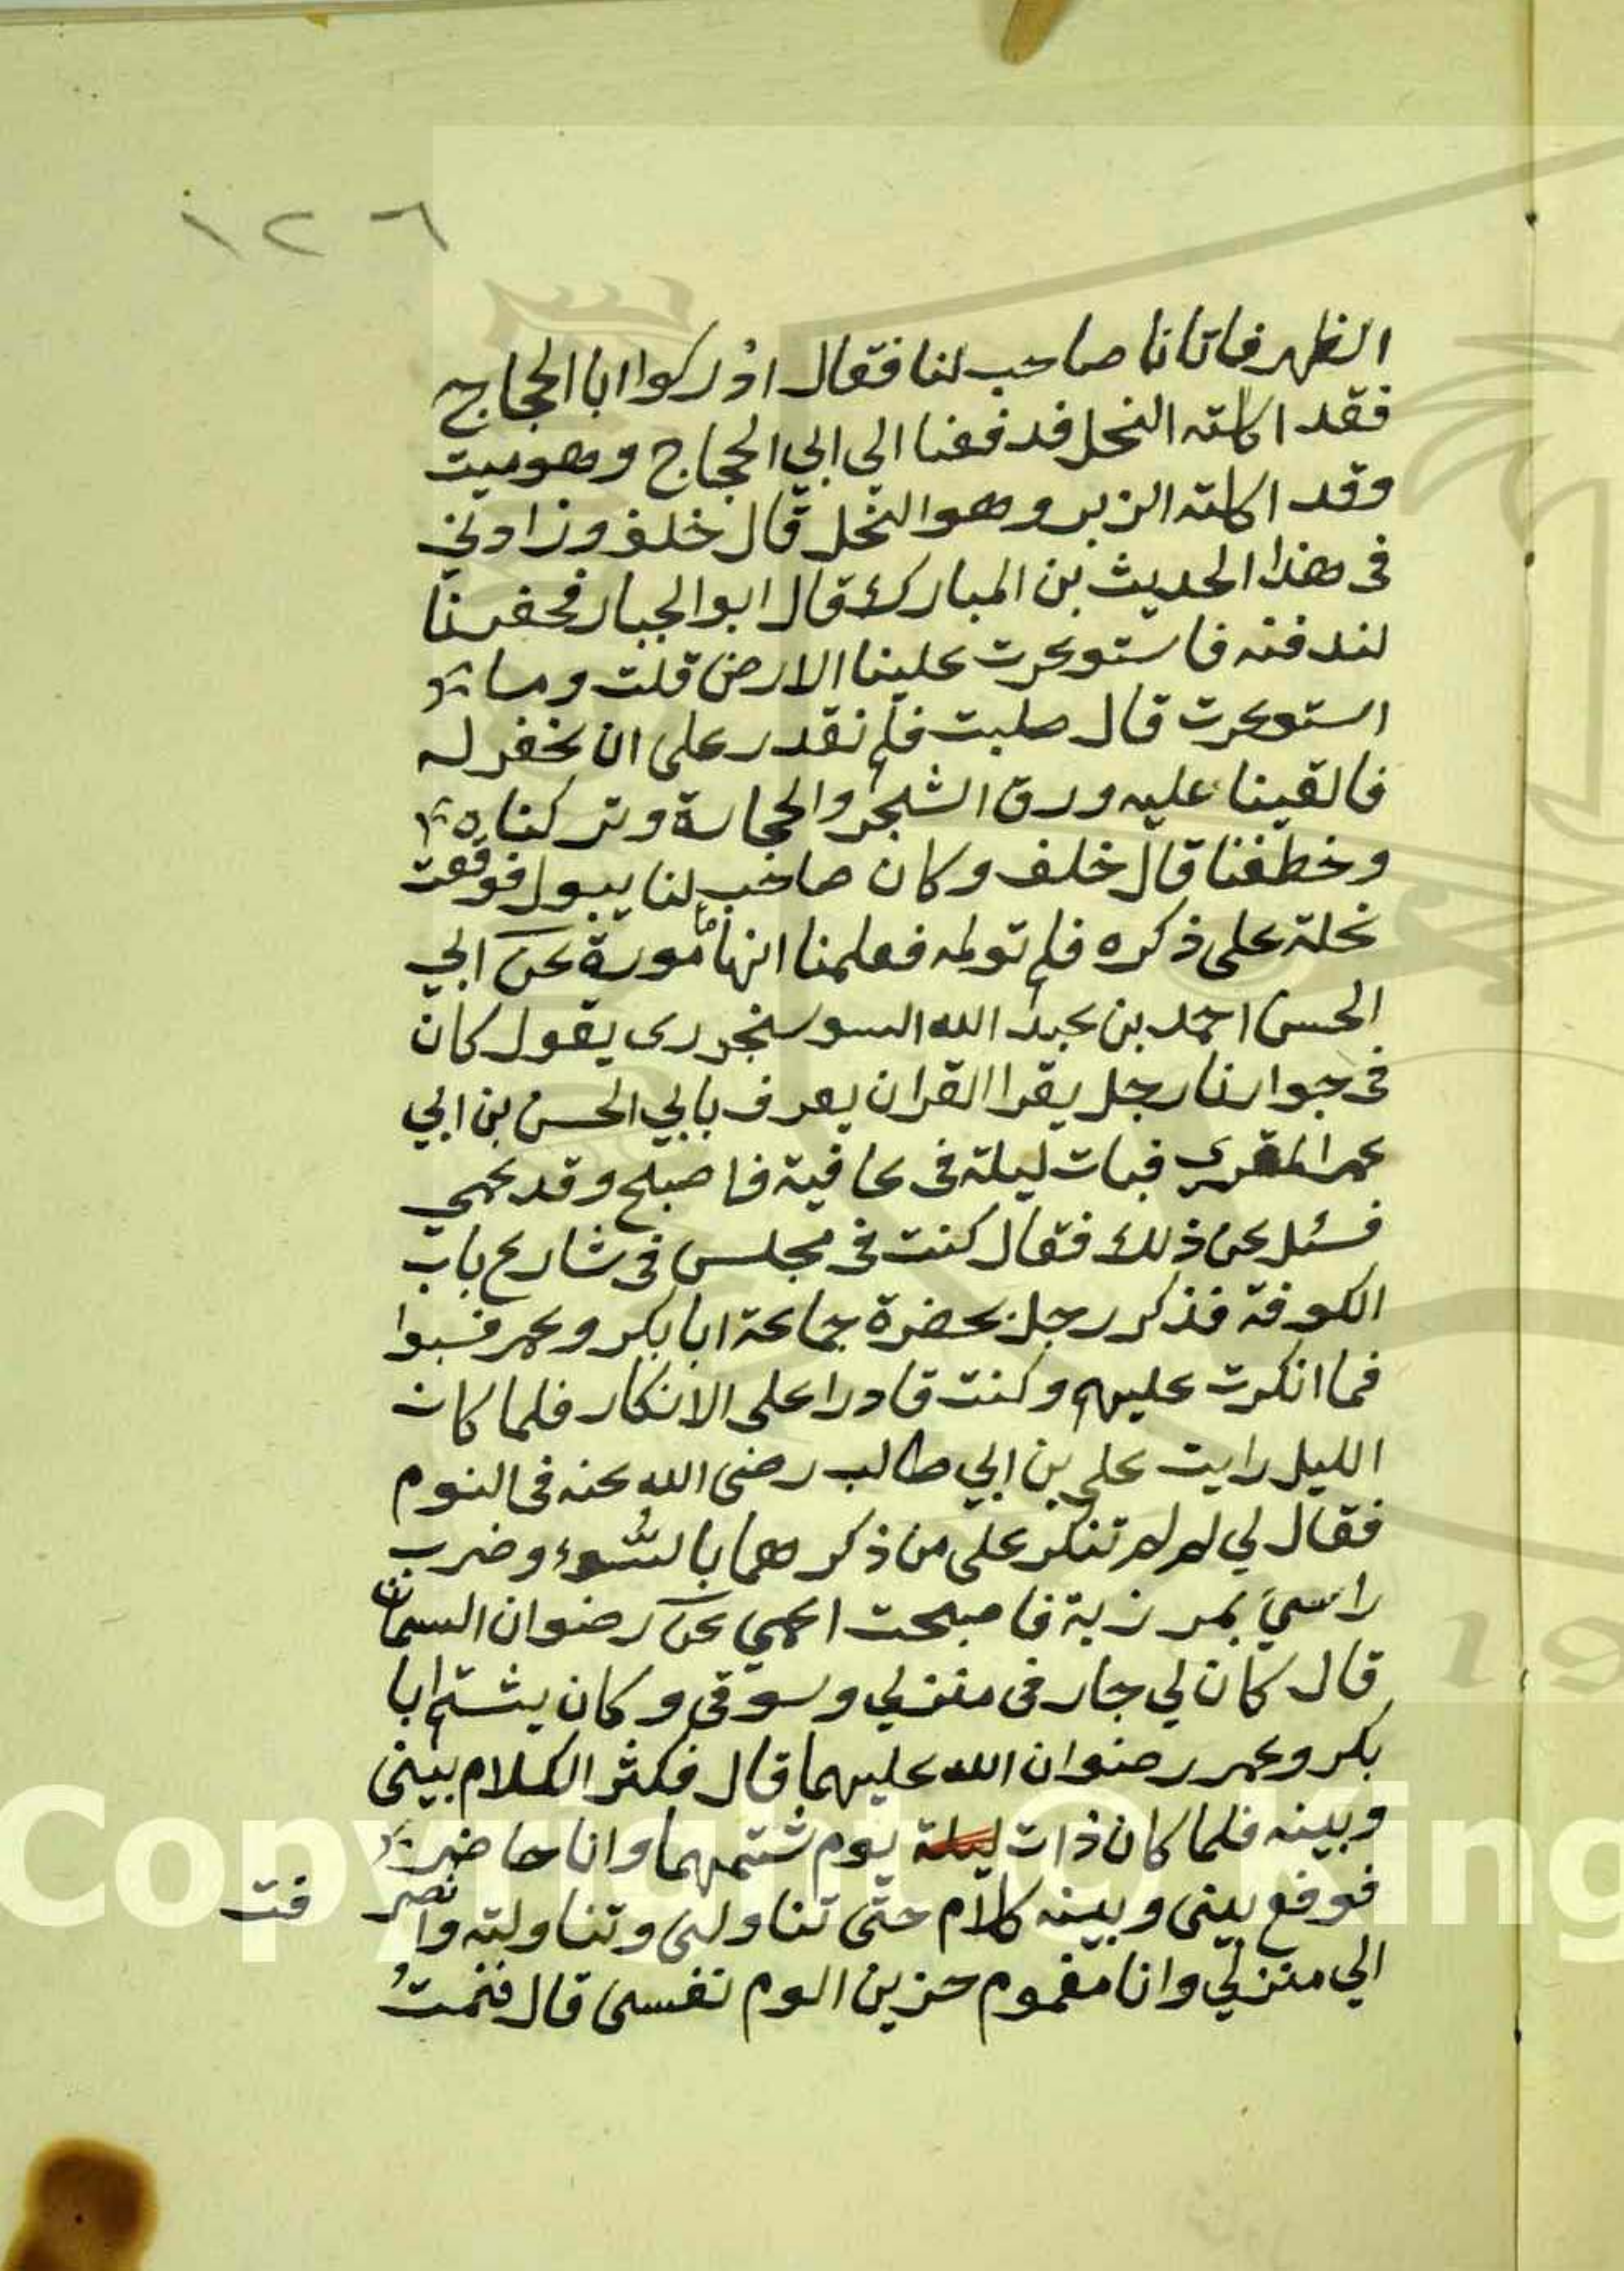 ١٢٦
الظهر فاتانا صاحب لنا فقال ادركوا ابا الحجاج
فقد اكلته النحل فدفعنا الي ابي الحجاج وهو ميت
وقد اكلته الزبر وهو النحل قال خلف وزادني
في هذا الحديث بن المبارك قال ابو الجبار فحفرنا
لندفنه فاستوعرت علينا الارض قلت وما
استوعرت قال صلبت فلم نقدر على ان نحفر له
فالقينا عليه ورق الشجر والحجارة وتركناه
وخطفنا قال خلف وكان صاحب لنا يبول فوقعت
نحلة على ذكره فلم تولمه فعلمنا انها مامورة عن ابي
الحسن احمد بن عبد الله السوسنجردى يقول كان
في جوارنا رجل يقرا القران يعرف بابي الحسن بن ابي
عمر المقري فبات ليلة في عافية فاصبح وقد عمي
فسئل عن ذلك فقال كنت في مجلس في شارع باب
الكوفة فذكر رجل بحضرة جماعة ابا بكر وعمر فسبوا
فما انكرت عليهم وكنت قادرا على الانكار فلما كان
الليل رايت علي بن ابي طالب رضى الله عنه في النوم
فقال لي لم لم تنكر على من ذكرهما بالسوء وضرب
راسي بمرزبة فاصبحت اعمي عن رضوان السمان
قال كان لي جار في منزلي وسوقي وكان يشتم ابا
بكر وعمر رضوان الله عليهما قال فكثر الكلام بيني
وبينه فلما كان ذات ليلة يوم شتمهما وانا حاضر
فوقع بيني وبينه كلام حتى تناولني وتناولته وانصر فت
الي منزلي وانا مغموم حزين الوم نفسي قال فنمت
Copyright © King
19